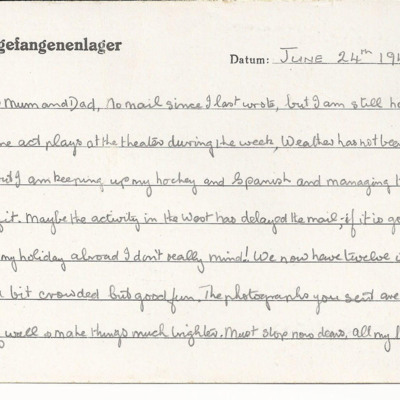 gefangenenlager
Datum: JUNE 24TH 194
Mum and Dad, No mail since I last wrote, but I am still ho
ne act plays at the theatre during the week, Weather has not bee
but I am keeping up my hockey and Spanish and managing t
fit. Maybe the activity in the West has delayed the mail, if it is go
my holiday abroad I don't really mind! We now have twelve i
a bit crowded but good fun. The photographs you sent are
well & make things much brighter. Must stop now dears, all my l